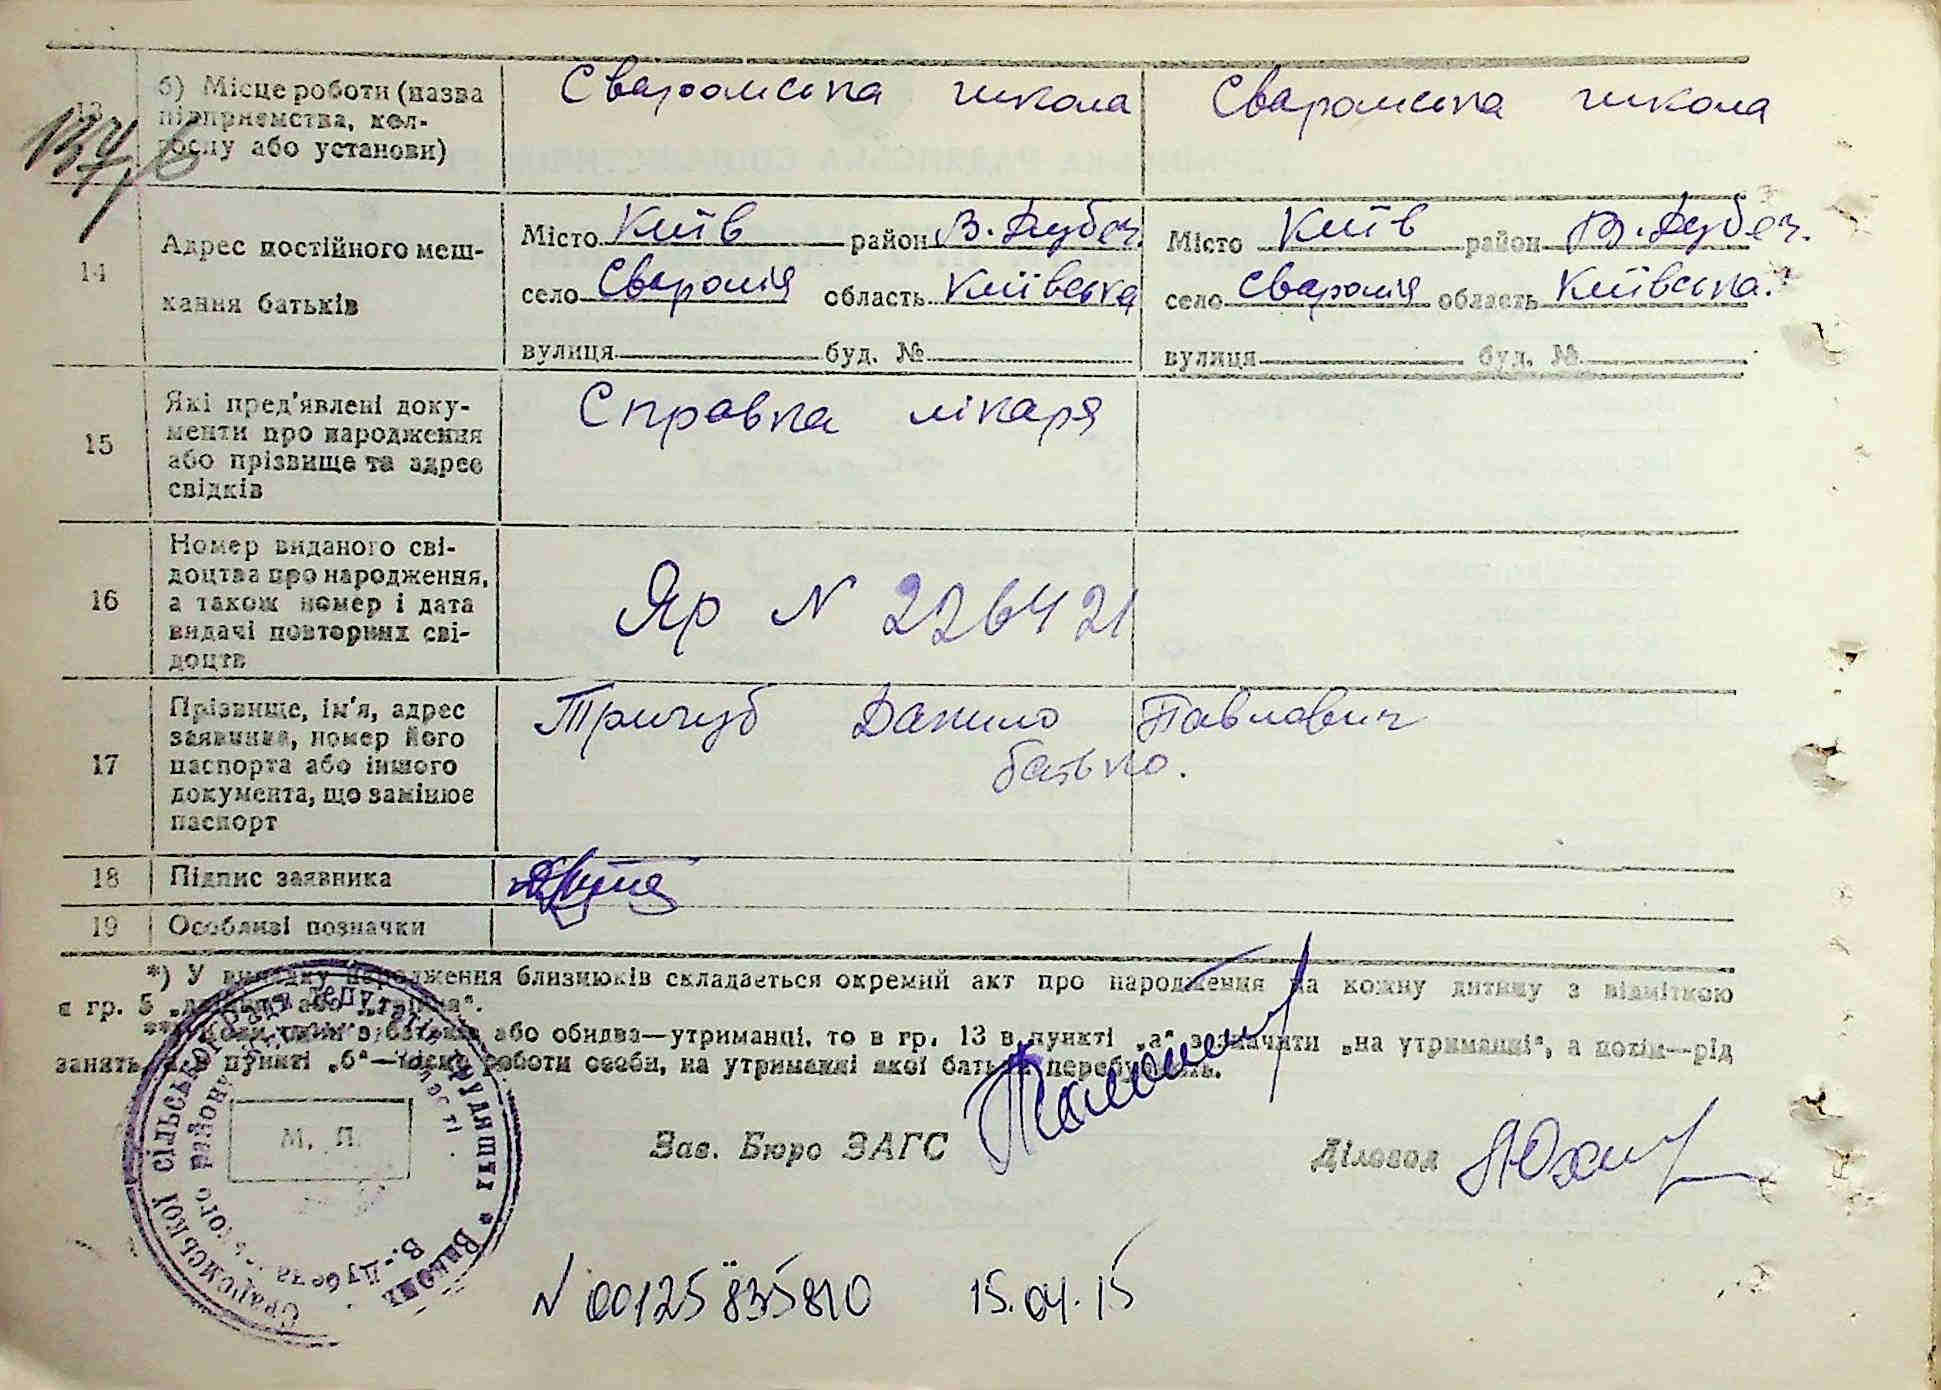 13 б) Місце роботи (назва Сваромська школа Сваромська школа
підприємства, кол-
госпу або установи)
Місто Київ район В. Дубеч. Місто Київ район В. Дубеч.
14 Адрес постійного меш-
кання батьків село Сваромія область Київська село Сваромія область Київська
вулиця буд. № вулиця буд. №
15 Які пред'явлені доку- Справка лікаря
менти про народження
або прізвище та адрес
свідків
16 Номер виданого сві-
доцтва про народження,
а також номер і дата Яр N 226421
видачі повторних сві-
доцтв
17 Прізвище, ім'я, адрес Тричуб Данило Павлович
заявника, номер його батько.
паспорта або іншого
документа, що замінює
паспорт
18 Підпис заявника
19 Особливі позначки
*) У випадку народження близнюків складається окремий акт про народження на кожну дитину з відміткою
в гр. 5 „двійня або „трійня“.
**) Коли один з батьків або обидва—утриманці, то в гр. 13 в пункті „а“ зазначити „на утриманні“, а потім—рід
занять, а в пункті „б“—місце роботи особи, на утриманні якої батьки перебувають.
Зав. Бюро ЗАГС Діловод
М. П.
Сваромської сільської Ради депутатів трудящих * Викон
В.-Дубечанського району
N 00125835810 15.04.15